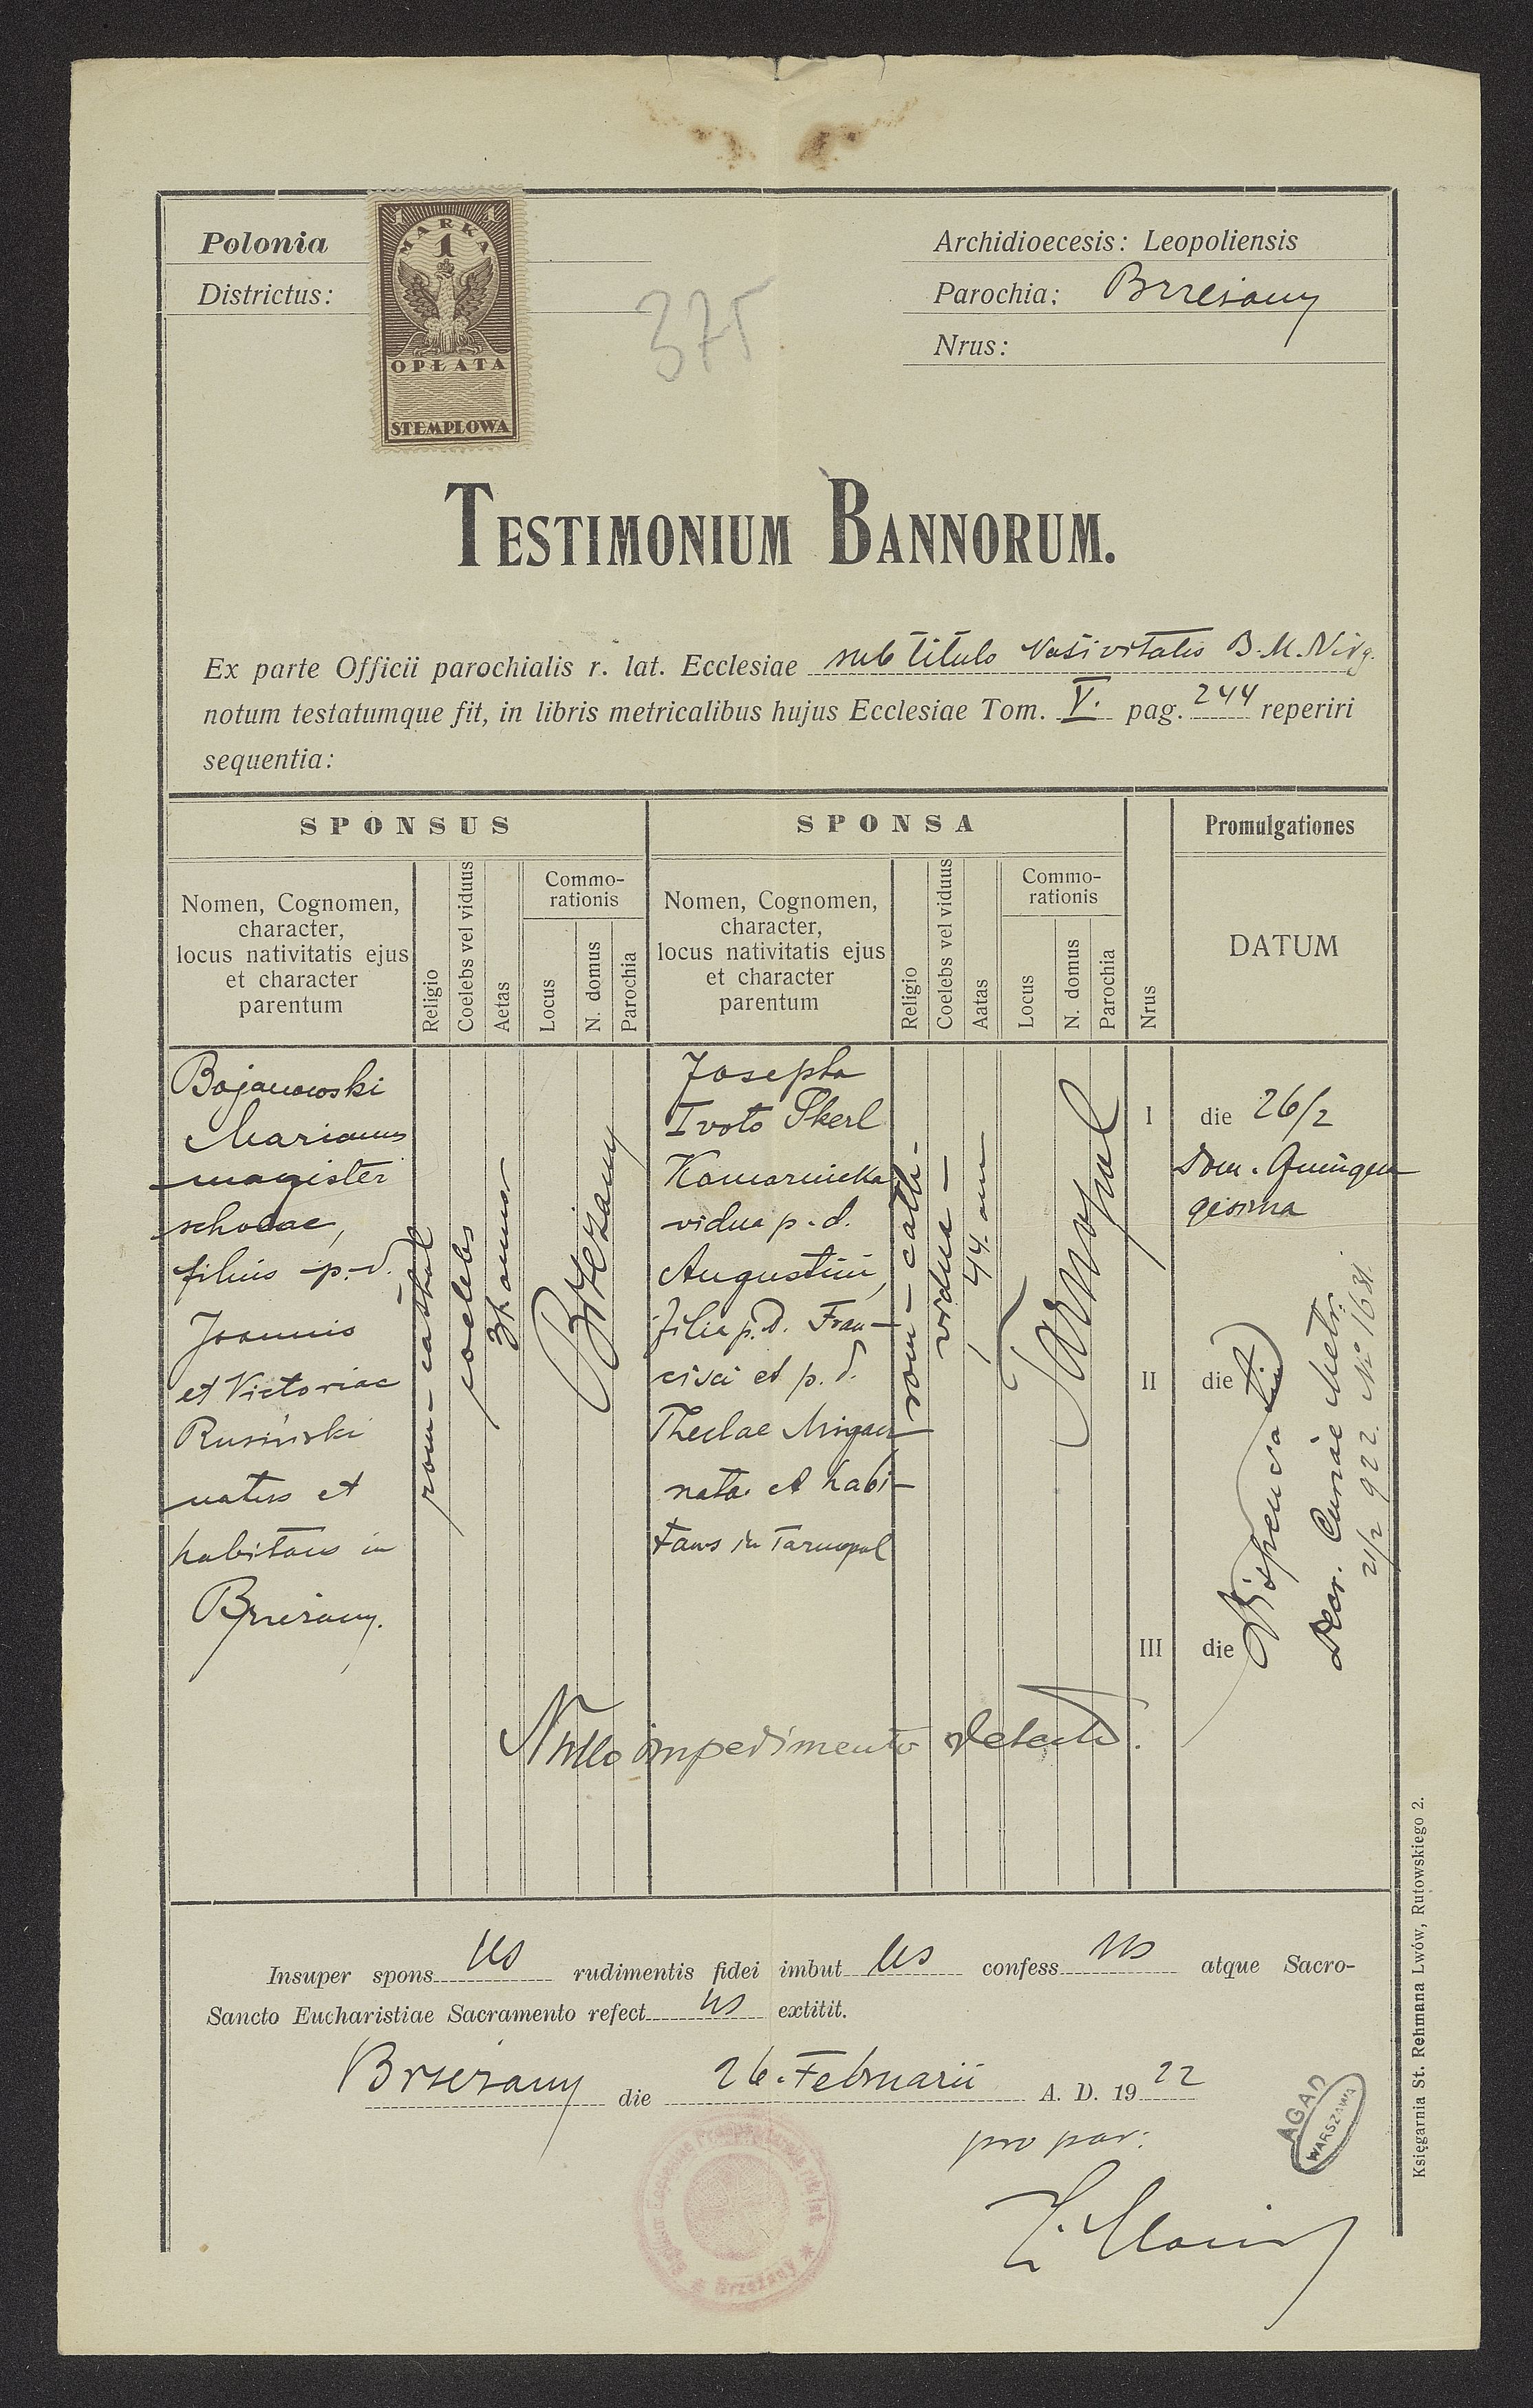 Polonia
Districtus:
1 1
MARKA
1
OPŁATA
STEMPLOWA
375
Archidioecesis: Leopoliensis
Parochia: Brzeżany
Nrus:
TESTIMONIUM BANNORUM.
Ex parte Officii parochialis r. lat. Ecclesiae sub titulo Nativitatis B. M. Virg.
notum testatumque fit, in libris metricalibus hujus Ecclesiae Tom. V. pag. 244 reperiri
sequentia:
SPONSUS
SPONSA
Promulgationes
Nomen, Cognomen,
character,
locus nativitatis ejus
et character
parentum
Religio
Coelebs vel viduus
Aetas
Commo-
rationis
Locus
N. domus
Parochia
Nomen, Cognomen,
character,
locus nativitatis ejus
et character
parentum
Religio
Coelebs vel viduus
Aatas
Commo-
rationis
Locus
N. domus
Parochia
Nrus
DATUM
Bojanowski
Marianus
magister
scholae,
filius p. d.
Joannis
et Victoriae
Rusiński
natus et
habitans in
Brzeżany.
rom-cathol
coelebs
Brzeżany
Josepha
I voto Skerl
Komarnicka
vidua p. d.
Augustini,
filia p. d. Fran-
cisci et p. d.
Theclae
nata et habi-
tans in Tarnopol
rom-cath-
vidua
44. ann
Tarnopol
I die 26/2
Dom. Quinqua
gesima
II die
III die
Dispensa
Decr. Curiae Metr.
21/2 922. No 1631.
Nullo impedimento detecto.
Insuper spons us rudimentis fidei imbut us confess us atque Sacro-
Sancto Eucharistiae Sacramento refect us extitit.
Brzeżany die 26. Februarii A. D. 19 22
pro par:
AGAD
WARSZAWA
Brzeżany
Księgarnia St. Rehmana Lwów, Rutowskiego 2.